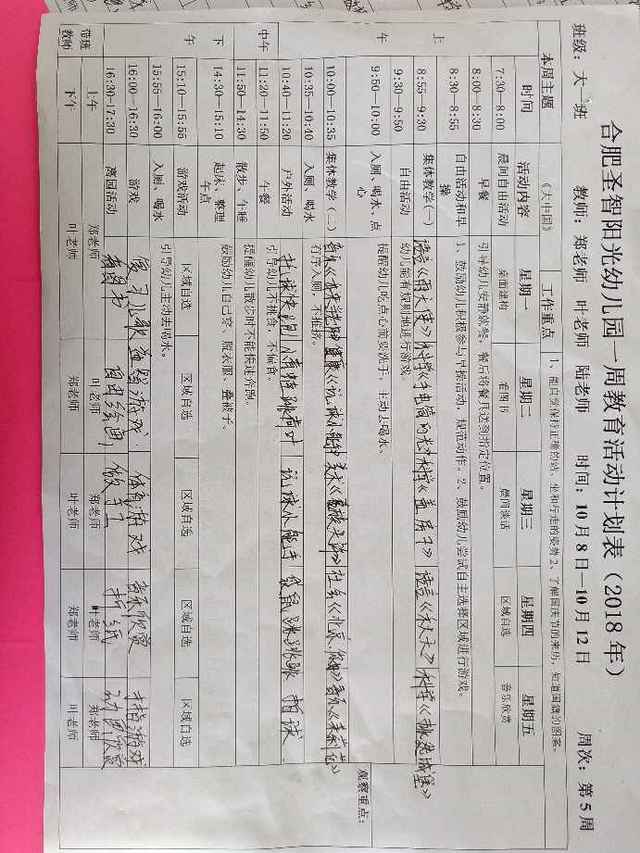 合肥圣智阳光幼儿园一周教育活动计划表（2018 年）
班级：大 班 教师：郑老师 叶老师 陆老师 时间：10 月 8 日—10 月 12 日 周次：第 5 周
本周主题 《大中国》 工作重点 1、能自觉保持正确的站、坐和行走的姿势 2、了解国庆节的来历，知道国旗的图案。
时间 活动内容 星期一 星期二 星期三 星期四 星期五
7:30—8:00 晨间自由活动 桌面建构 看图书 晨间谈话 区域自选 音乐欣赏
8:00—8:30 早餐 引导幼儿安静就餐，餐后将餐具送到指定位置。
上午
8:30—8:55 自由活动和早操 1、鼓励幼儿积极参与早操活动，规范动作。2、鼓励幼儿尝试自主选择区域进行游戏。
8:55—9:30 集体教学(一) 语言《雨大使》 科学《手电筒的光》 科学《盖房子》 语言《秋天》 科学
9:30—9:50 自由活动 幼儿能有规则地进行游戏。
9:50—10:00 入厕、喝水、点心 提醒幼儿吃点心前要洗手，主动去喝水。
10:00—10:35 集体教学（二） 音乐 健康《玩球小能手》 美术 社会 音乐
观察重点：
10:35—10:40 入厕、喝水 有序入厕，不推挤。
10:40—11:20 户外活动 托球快跑 小青蛙跳荷叶 玩球小能手 袋鼠跳跳跳 拍球
中午
11:20—11:50 午餐 引导幼儿不挑食，不偏食。
11:50—14:30 散步、午睡 提醒幼儿散步时不能快速奔跑。
下午
14:30—15:10 起床、整理 午点 鼓励幼儿自己穿、脱衣服、叠被子。
15:10—15:55 游戏活动 区域自选 区域自选 区域自选 区域自选 区域自选
15:55—16:00 入厕、喝水 引导幼儿主动去喝水。
16:00—16:30 游戏 复习儿歌 益智游戏 体育游戏 音乐欣赏 手指游戏
16:30—17:30 离园活动 看图书 自由绘画 做手工 折纸 动画欣赏
带班教师 上午 郑老师 叶老师 郑老师 叶老师 郑老师
下午 叶老师 郑老师 叶老师 郑老师 叶老师